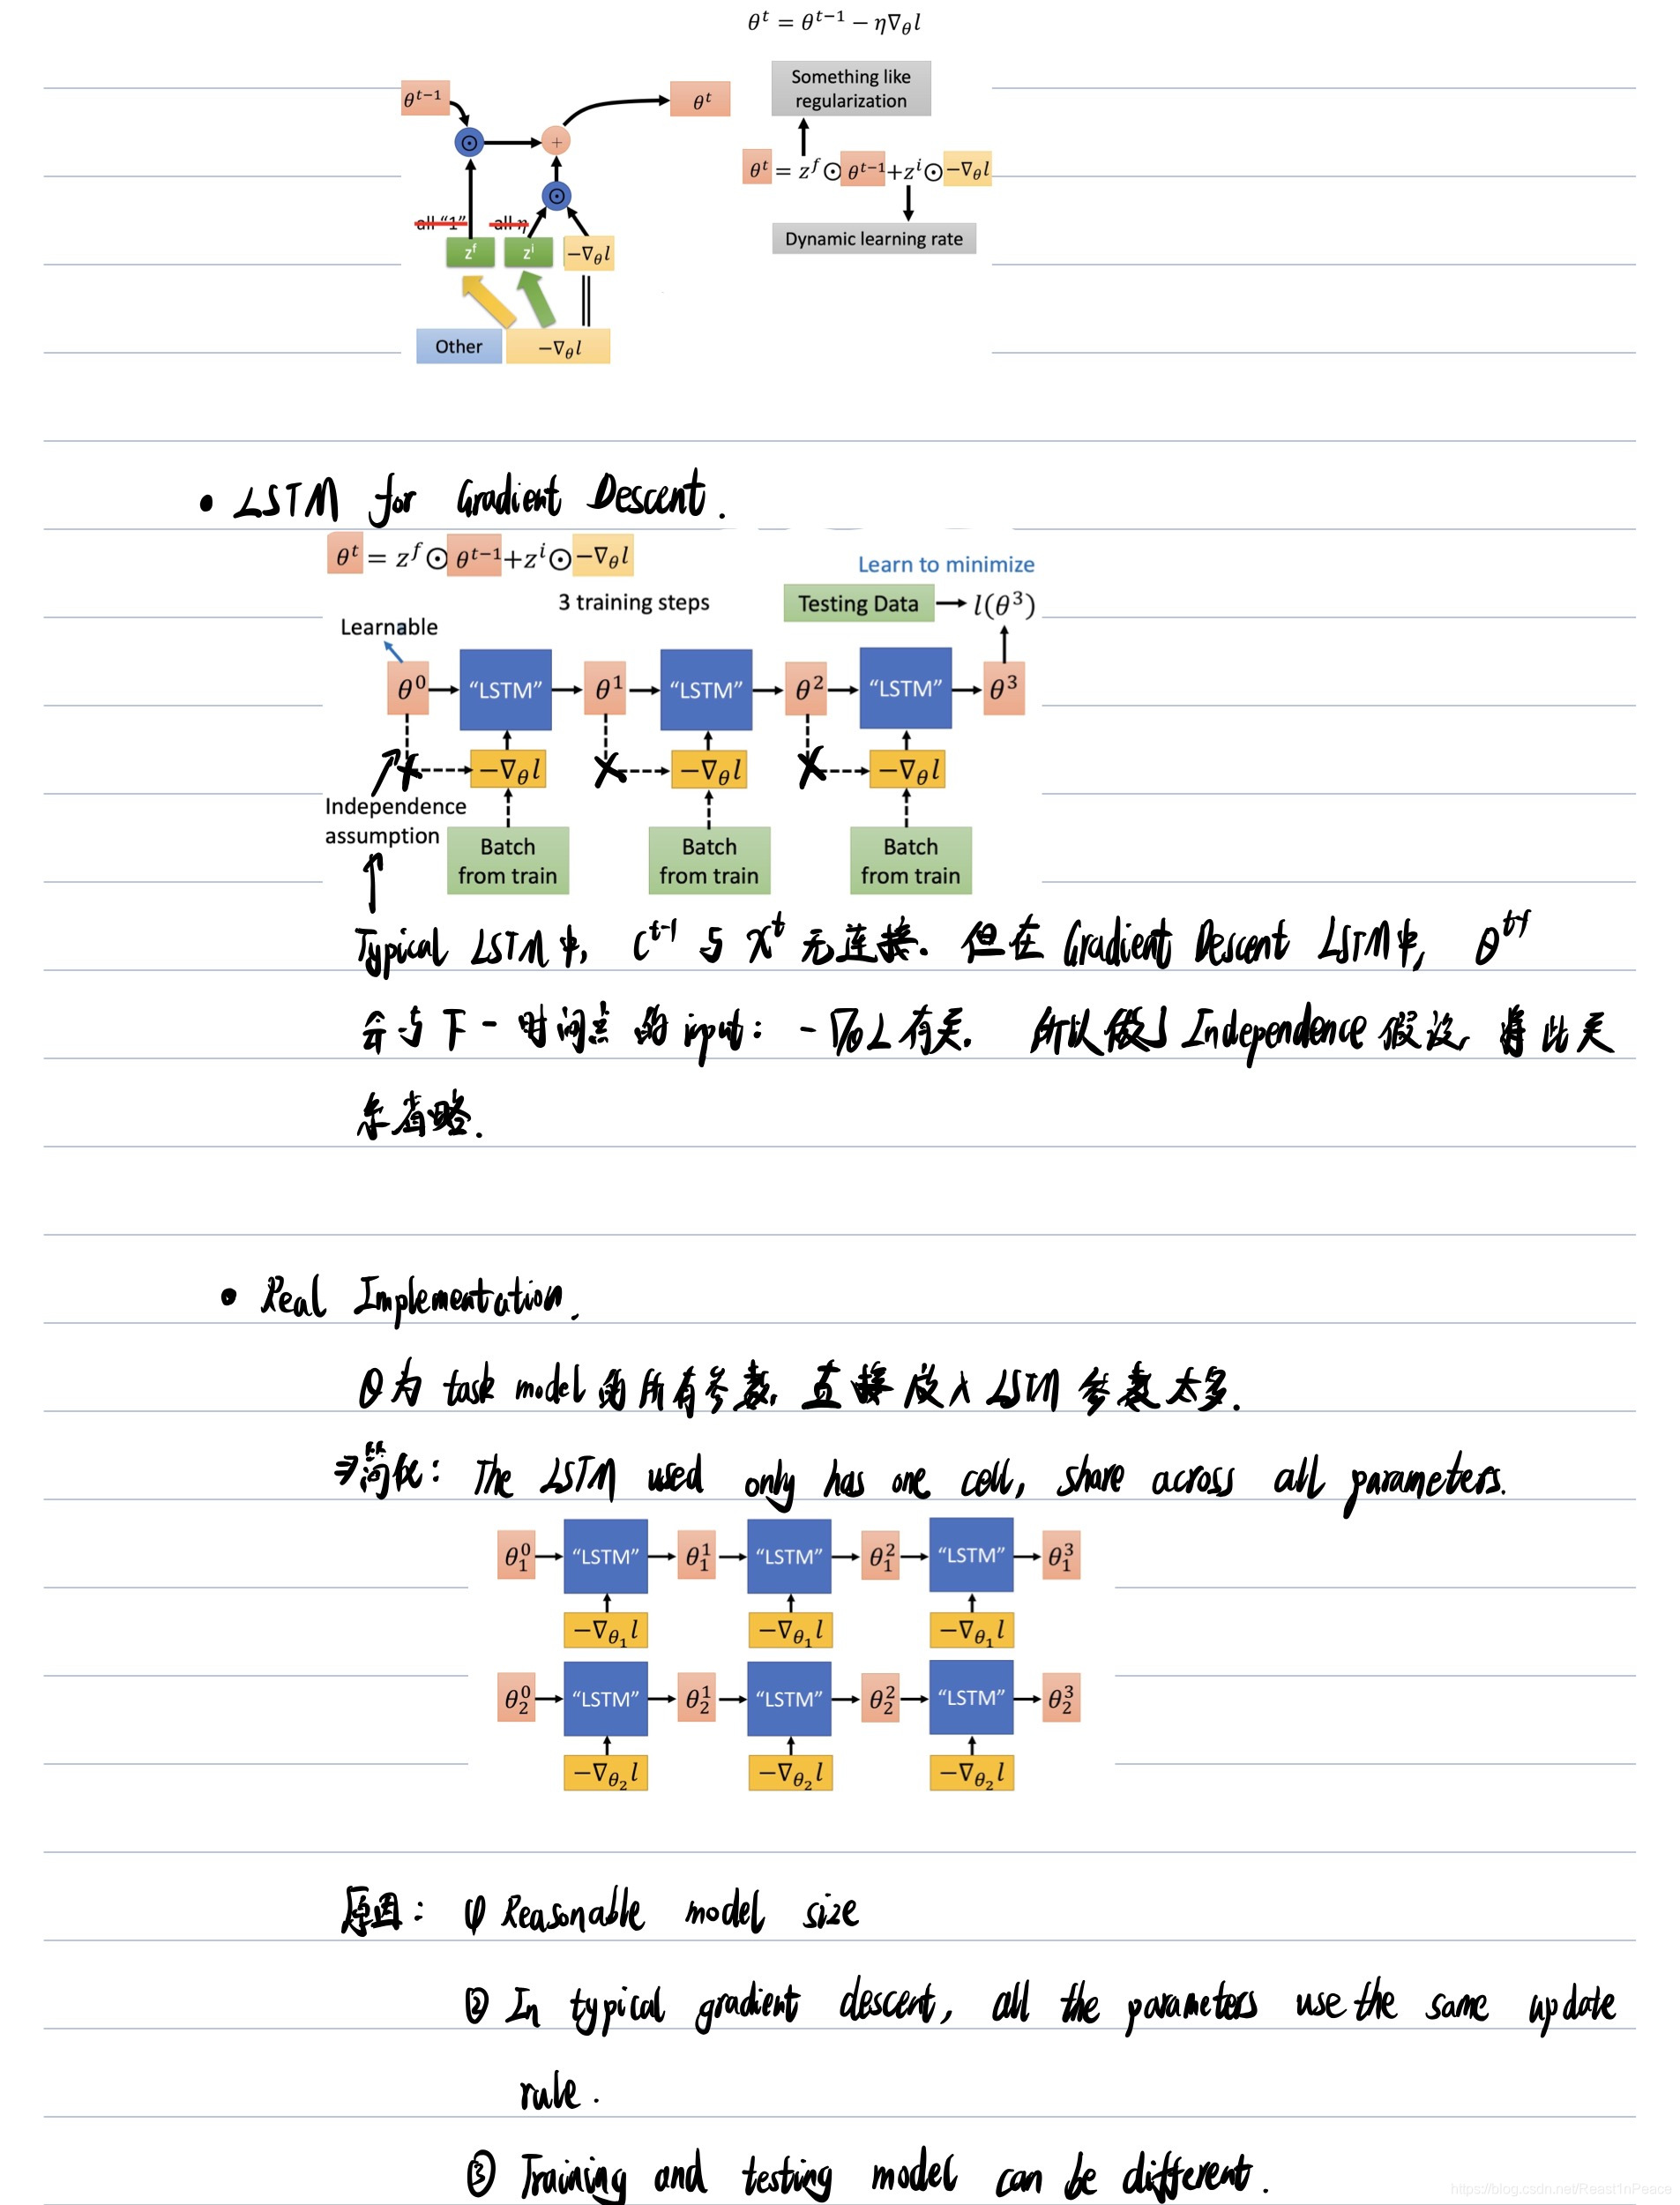 θ^t = θ^{t−1} − η∇_θ l
Something like
regularization
θ^{t−1}
θ^t
⊙
+
θ^t = z^f ⊙ θ^{t−1} + z^i ⊙ −∇_θ l
⊙
all “1” all η
Dynamic learning rate
z^f z^i −∇_θ l
Other −∇_θ l
• LSTM for Gradient Descent.
θ^t = z^f ⊙ θ^{t−1} + z^i ⊙ −∇_θ l
Learn to minimize
3 training steps
Testing Data l(θ^3)
Learnable
θ^0 “LSTM” θ^1 “LSTM” θ^2 “LSTM” θ^3
−∇_θ l −∇_θ l −∇_θ l
Independence
assumption
Batch Batch Batch
from train from train from train
Typical LSTM中, C^{t-1} 与 X^t 无连接. 但在 Gradient Descent LSTM中, θ^{t-1}
会与下一时间点的 input: -∇θL 有关. 所以做了 Independence 假设, 将此关
系省略.
• Real Implementation.
θ为 task model 的所有参数, 直接放入 LSTM 参数太多.
⇒简化: The LSTM used only has one cell, share across all parameters.
θ_1^0 “LSTM” θ_1^1 “LSTM” θ_1^2 “LSTM” θ_1^3
−∇_{θ_1} l −∇_{θ_1} l −∇_{θ_1} l
θ_2^0 “LSTM” θ_2^1 “LSTM” θ_2^2 “LSTM” θ_2^3
−∇_{θ_2} l −∇_{θ_2} l −∇_{θ_2} l
原因: ① Reasonable model size
② In typical gradient descent, all the parameters use the same update
rule.
③ Training and testing model can be different.
https://blog.csdn.net/Reast1nPeace